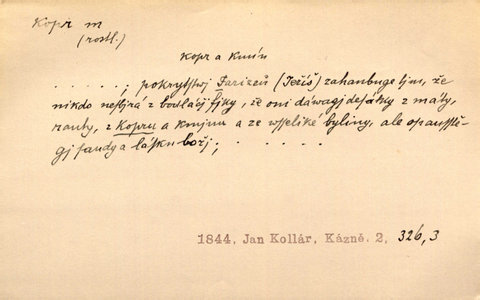 Kopr m
(rostl.)
Kopr a kmín
. . . . . . ; pokrytstwj Farizeů (Ježíš) zahanbuge tjm, že
nikdo nesbjrá z bodláčj fjky, že oni dáwagj desátky z máty,
rauty, z Kopru a kmjnu a ze wšeliké byliny, ale opausstě-
gj saudy a lásku božj; . . . . . .
1844, Jan Kollár, Kázně. 2, 326,3